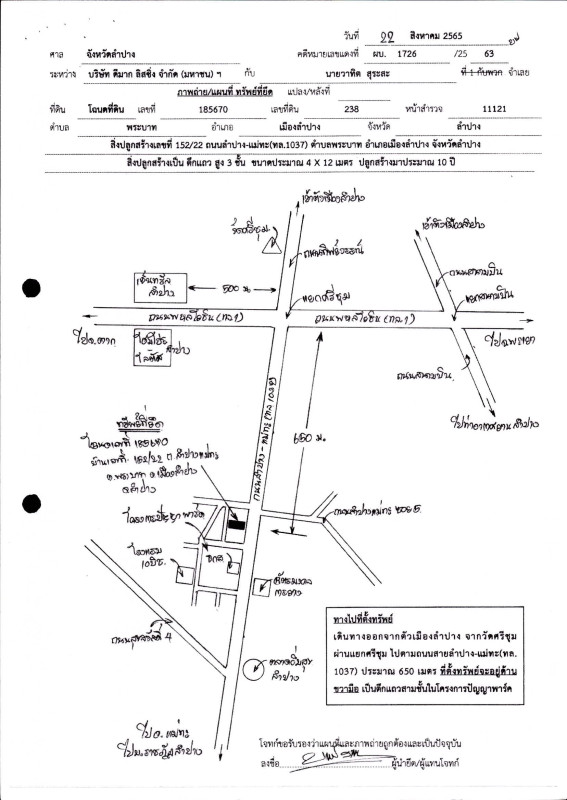 วันที่ 22 สิงหาคม 2565
ศาล จังหวัดลำปาง คดีหมายเลขแดงที่ ผบ. 1726 /25 63
ระหว่าง บริษัท ดีมาก ลิสซิ่ง จำกัด (มหาชน) ฯ กับ นายวาทิต สุระสะ ที่ 1 กับพวก จำเลย
ภาพถ่าย/แผนที่ ทรัพย์ที่ยึด แปลง/หลังที่
ที่ดิน โฉนดที่ดิน เลขที่ 185670 เลขที่ดิน 238 หน้าสำรวจ 11121
ตำบล พระบาท อำเภอ เมืองลำปาง จังหวัด ลำปาง
สิ่งปลูกสร้างเลขที่ 152/22 ถนนลำปาง-แม่ทะ(ทล.1037) ตำบลพระบาท อำเภอเมืองลำปาง จังหวัดลำปาง
สิ่งปลูกสร้างเป็น ตึกแถว สูง 3 ชั้น ขนาดประมาณ 4 X 12 เมตร ปลูกสร้างมาประมาณ 10 ปี
เข้าตัวเมืองลำปาง
วัดศรีชุม
เข้าตัวเมืองลำปาง
ถนนสนามบิน
เซ็นทรัล
ลำปาง
500 ม.
แยกศรีชุม
แยกสนามบิน
ถนนพหลโยธิน (ทล.1)
ถนนพหลโยธิน (ทล.1)
ไปจ.ตาก
ลำปาง
ไปจ.พะเยา
ถนนสนามบิน
ไปท่าอากาศยานลำปาง
ถนนลำปาง - แม่ทะ (ทล.1037)
650 ม.
ทรัพย์ที่ยึด
โฉนดเลขที่ 185670
บ้านเลขที่ 152/22 ถ.ลำปางแม่ทะ
ต.พระบาท อ.เมืองลำปาง
จ.ลำปาง
โครงการปัญญาพาร์ค
โรงแรม
ธกส.
ตลาด
ลำปาง
ไปอ.แม่ทะ
ไปม.ราชภัฏลำปาง
ทางไปที่ตั้งทรัพย์
เดินทางออกจากตัวเมืองลำปาง จากวัดศรีชุม
ผ่านแยกศรีชุม ไปตามถนนสายลำปาง-แม่ทะ(ทล.
1037) ประมาณ 650 เมตร ที่ตั้งทรัพย์จะอยู่ด้าน
ขวามือ เป็นตึกแถวสามชั้นในโครงการปัญญาพาร์ค
โจทก์ขอรับรองว่าแผนที่และภาพถ่ายถูกต้องและเป็นปัจจุบัน
ลงชื่อ ผู้นำยึด/ผู้แทนโจทก์